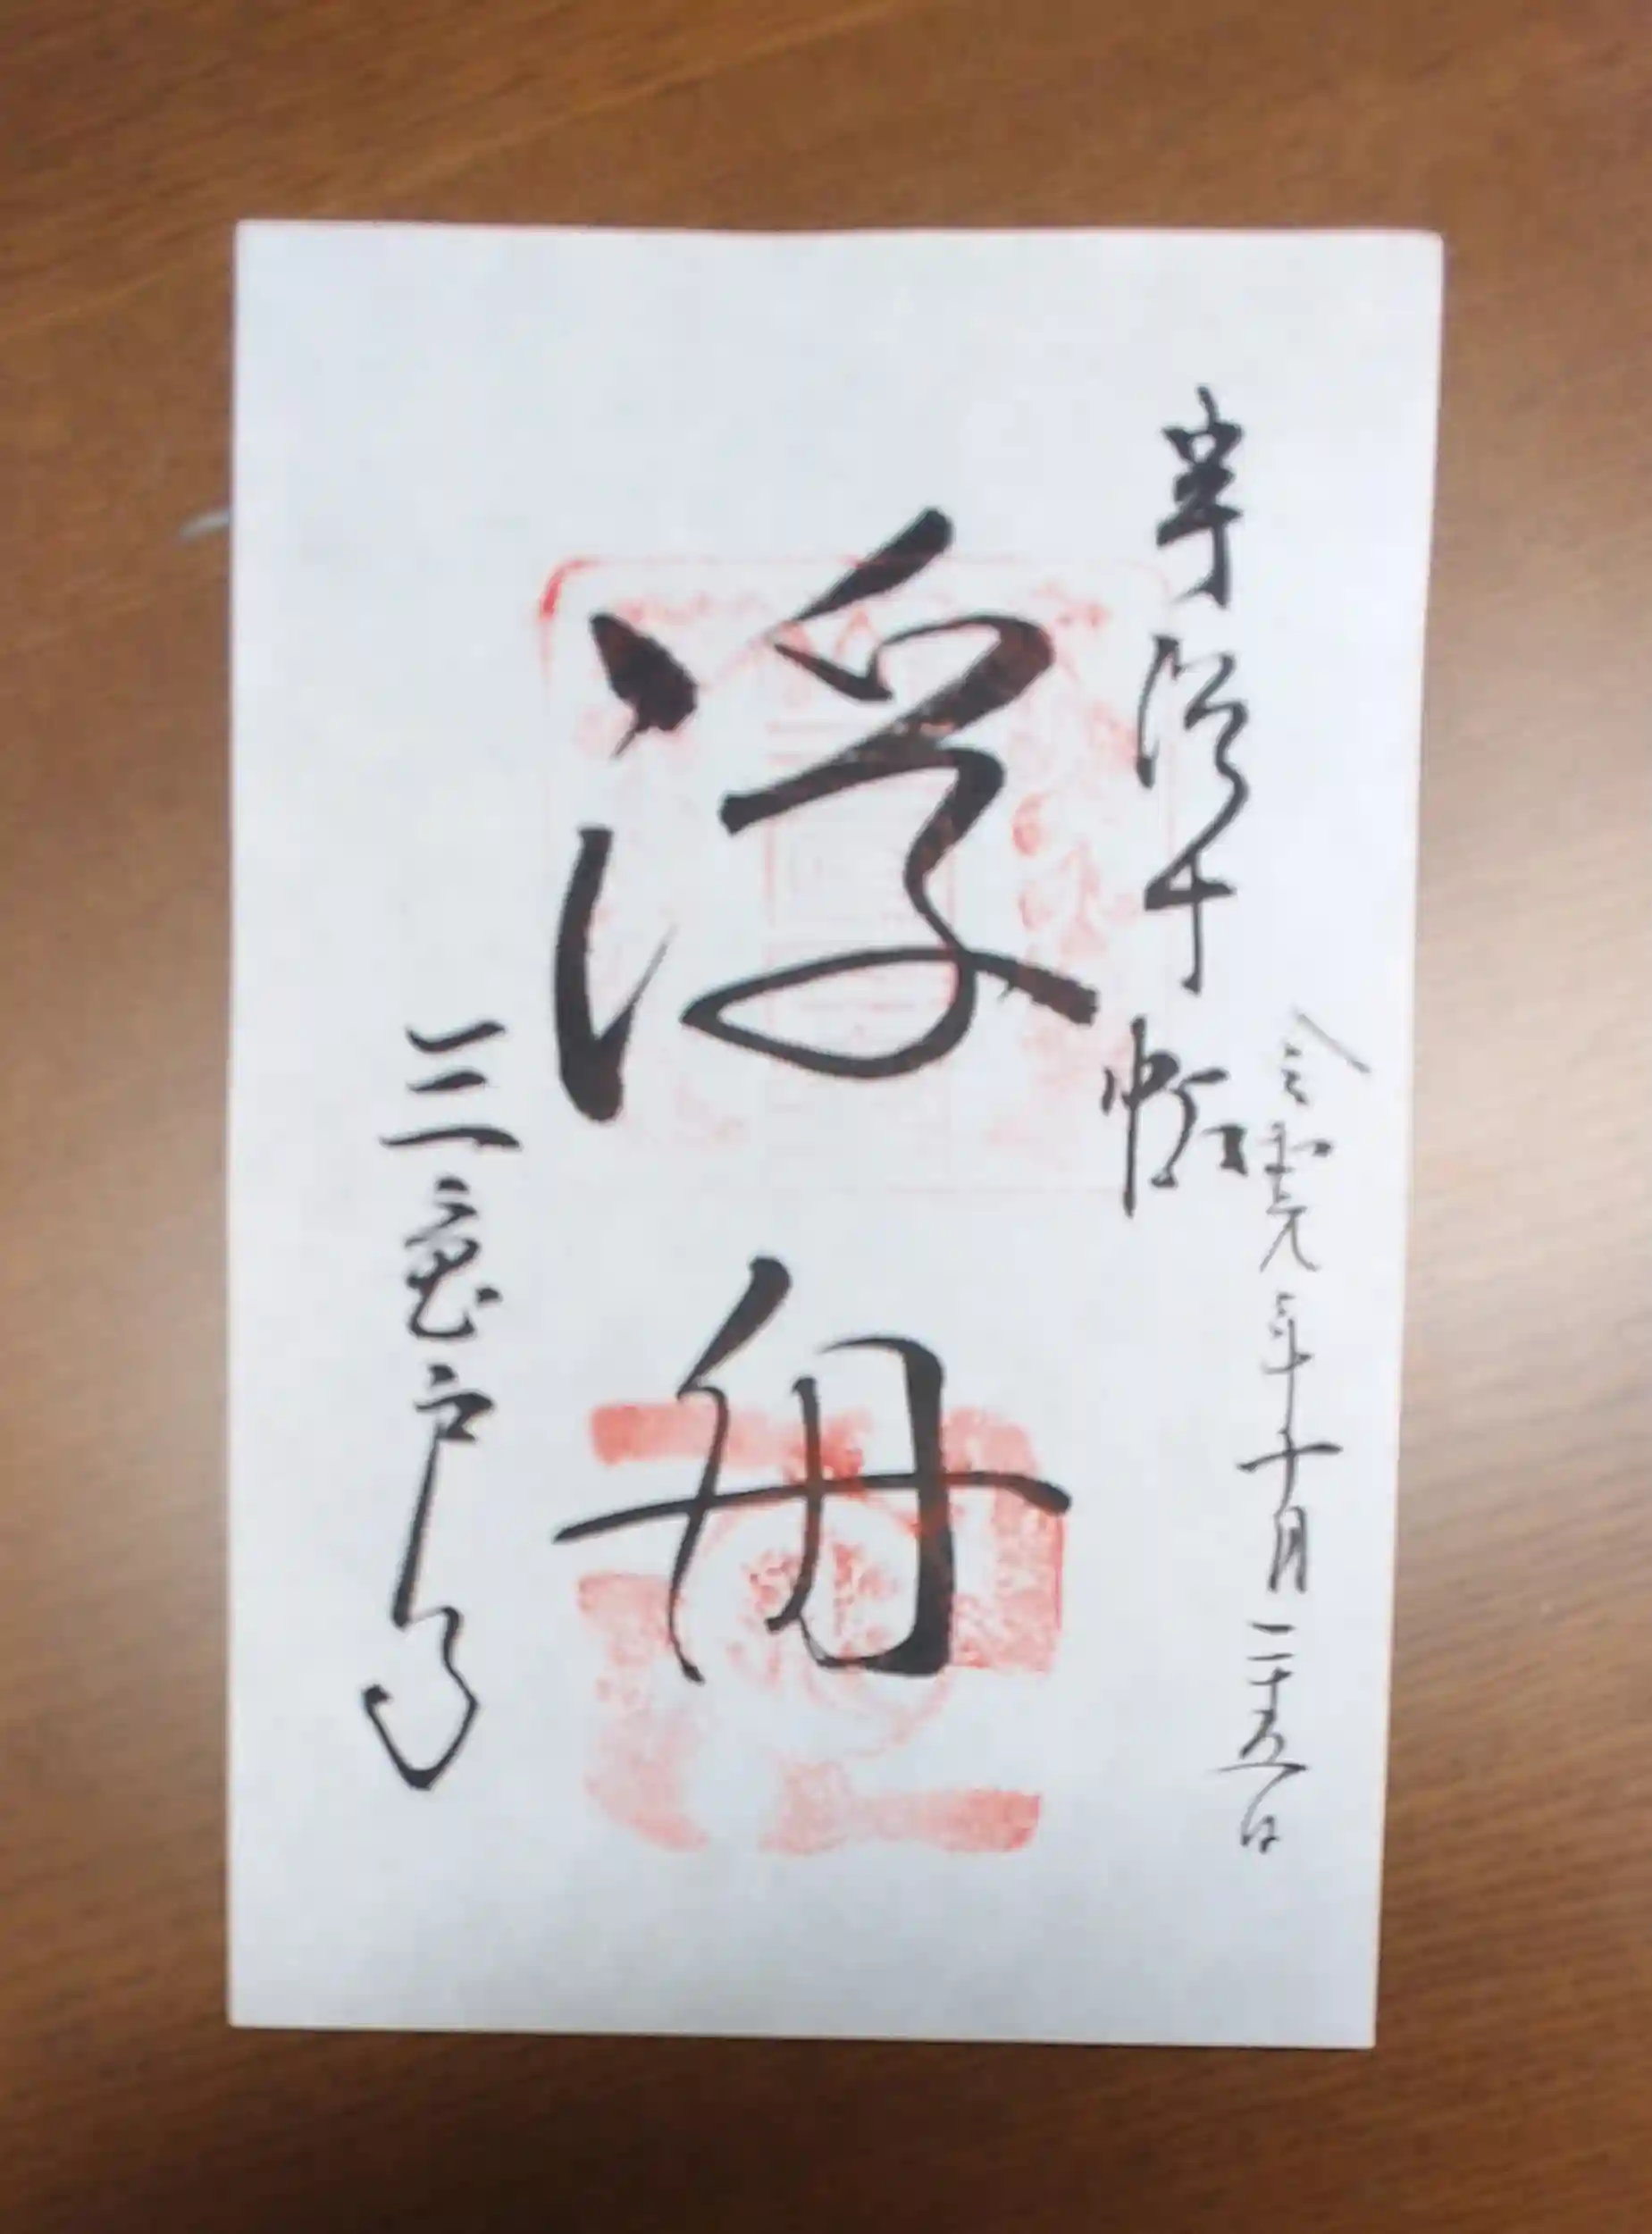 令和元年十月二十五日
宇治十帖
浮舟
三室戸寺